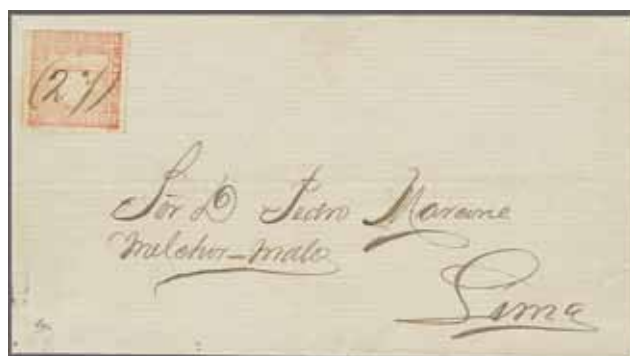 (27)
Sõr D Pedro Marcone
Melchor-malo
Lima